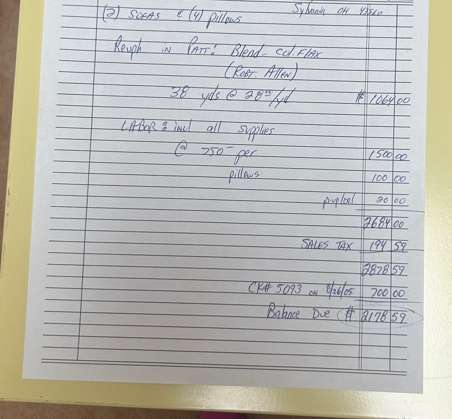 (2) SOFAS & (4) pillows Sylvania OH 43560
Reuph IN PATT: Blend - col FLAX
(ROBT. Allen)
38 yds @ 28⁰⁰/yd $1064.00
LABOR: incl all supplies
@ 750— per 1500.00
pillows 100.00
pup/del 20.00
2684.00
SALES TAX 194.59
2878.59
CK# 5093 on 8/26/05 700.00
Balance Due ($ 2178.59